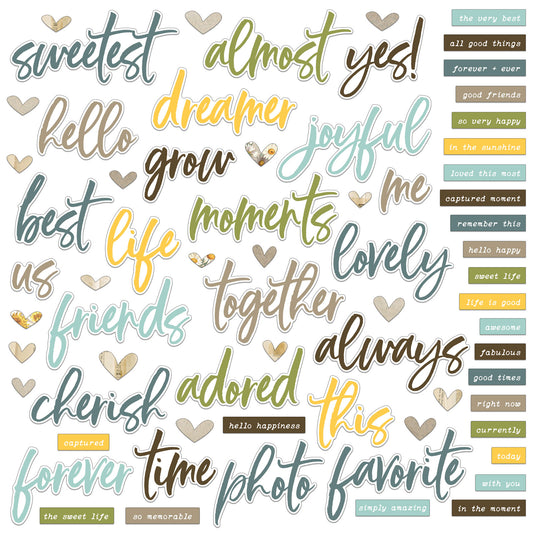 sweetest
almost
yes!
dreamer
hello
grow
joyful
me
best
life
moments
lovely
us
together
friends
always
adored
cherish
this
hello happiness
captured
forever
time
photo
favorite
the sweet life
so memorable
simply amazing
the very best
all good things
forever + ever
good friends
so very happy
in the sunshine
loved this most
captured moment
remember this
hello happy
sweet life
life is good
awesome
fabulous
good times
right now
currently
today
with you
in the moment